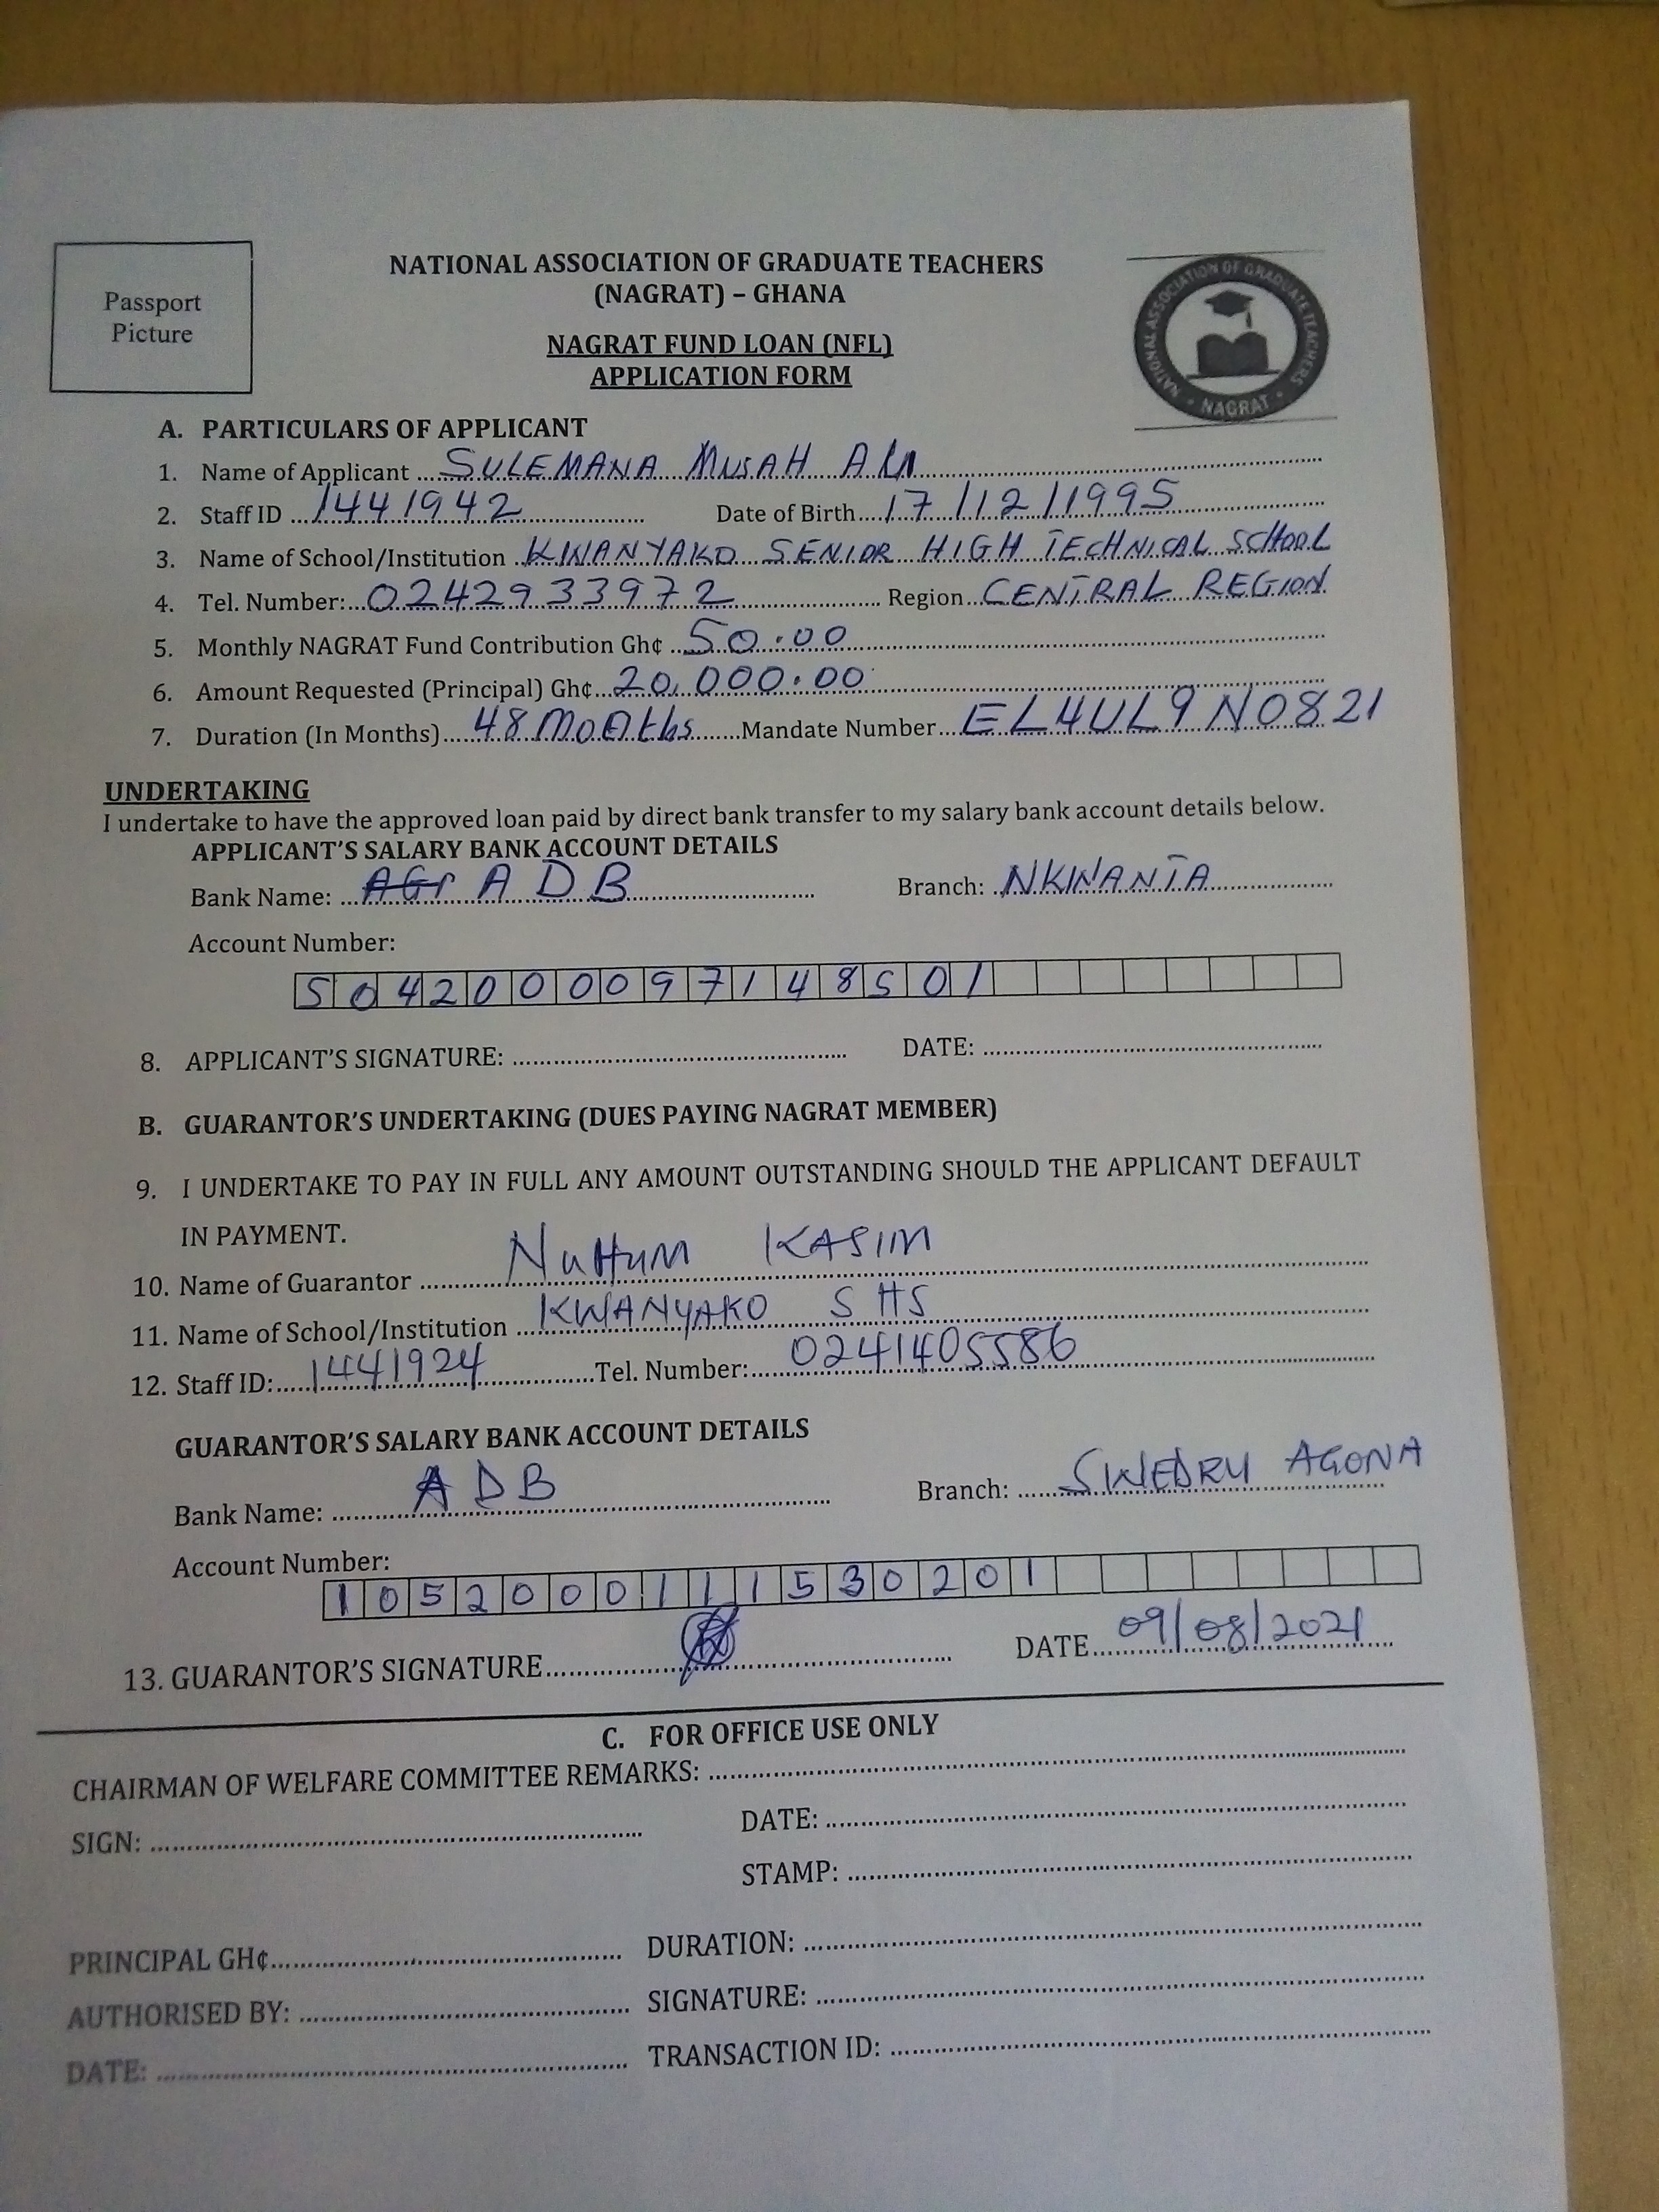 Passport
Picture
NATIONAL ASSOCIATION OF GRADUATE TEACHERS
(NAGRAT) – GHANA
NAGRAT FUND LOAN (NFL)
APPLICATION FORM
NATIONAL ASSOCIATION OF GRADUATE TEACHERS
• NAGRAT •
A. PARTICULARS OF APPLICANT
1. Name of Applicant SULEMANA MUSAH
2. Staff ID 1441942 Date of Birth 17/12/1995
3. Name of School/Institution KWANYAKO SENIOR HIGH TECHNICAL SCHOOL
4. Tel. Number: 0242933972 Region CENTRAL REGION
5. Monthly NAGRAT Fund Contribution Gh¢ 50.00
6. Amount Requested (Principal) Gh¢ 20,000.00
7. Duration (In Months) 48 Months Mandate Number EL4UL9N0821
UNDERTAKING
I undertake to have the approved loan paid by direct bank transfer to my salary bank account details below.
APPLICANT'S SALARY BANK ACCOUNT DETAILS
Bank Name: ADB Branch: NKWANTA
Account Number:
5042000097148501
8. APPLICANT'S SIGNATURE: DATE:
B. GUARANTOR'S UNDERTAKING (DUES PAYING NAGRAT MEMBER)
9. I UNDERTAKE TO PAY IN FULL ANY AMOUNT OUTSTANDING SHOULD THE APPLICANT DEFAULT
IN PAYMENT.
10. Name of Guarantor KASIM
11. Name of School/Institution KWANYAKO SHS
12. Staff ID: 1441924 Tel. Number: 0241405586
GUARANTOR'S SALARY BANK ACCOUNT DETAILS
Bank Name: ADB Branch: SWEDRU AGONA
Account Number:
1052000111530201
13. GUARANTOR'S SIGNATURE DATE 09/08/2021
C. FOR OFFICE USE ONLY
CHAIRMAN OF WELFARE COMMITTEE REMARKS:
SIGN: DATE:
STAMP:
PRINCIPAL GH¢ DURATION:
AUTHORISED BY: SIGNATURE:
DATE: TRANSACTION ID: